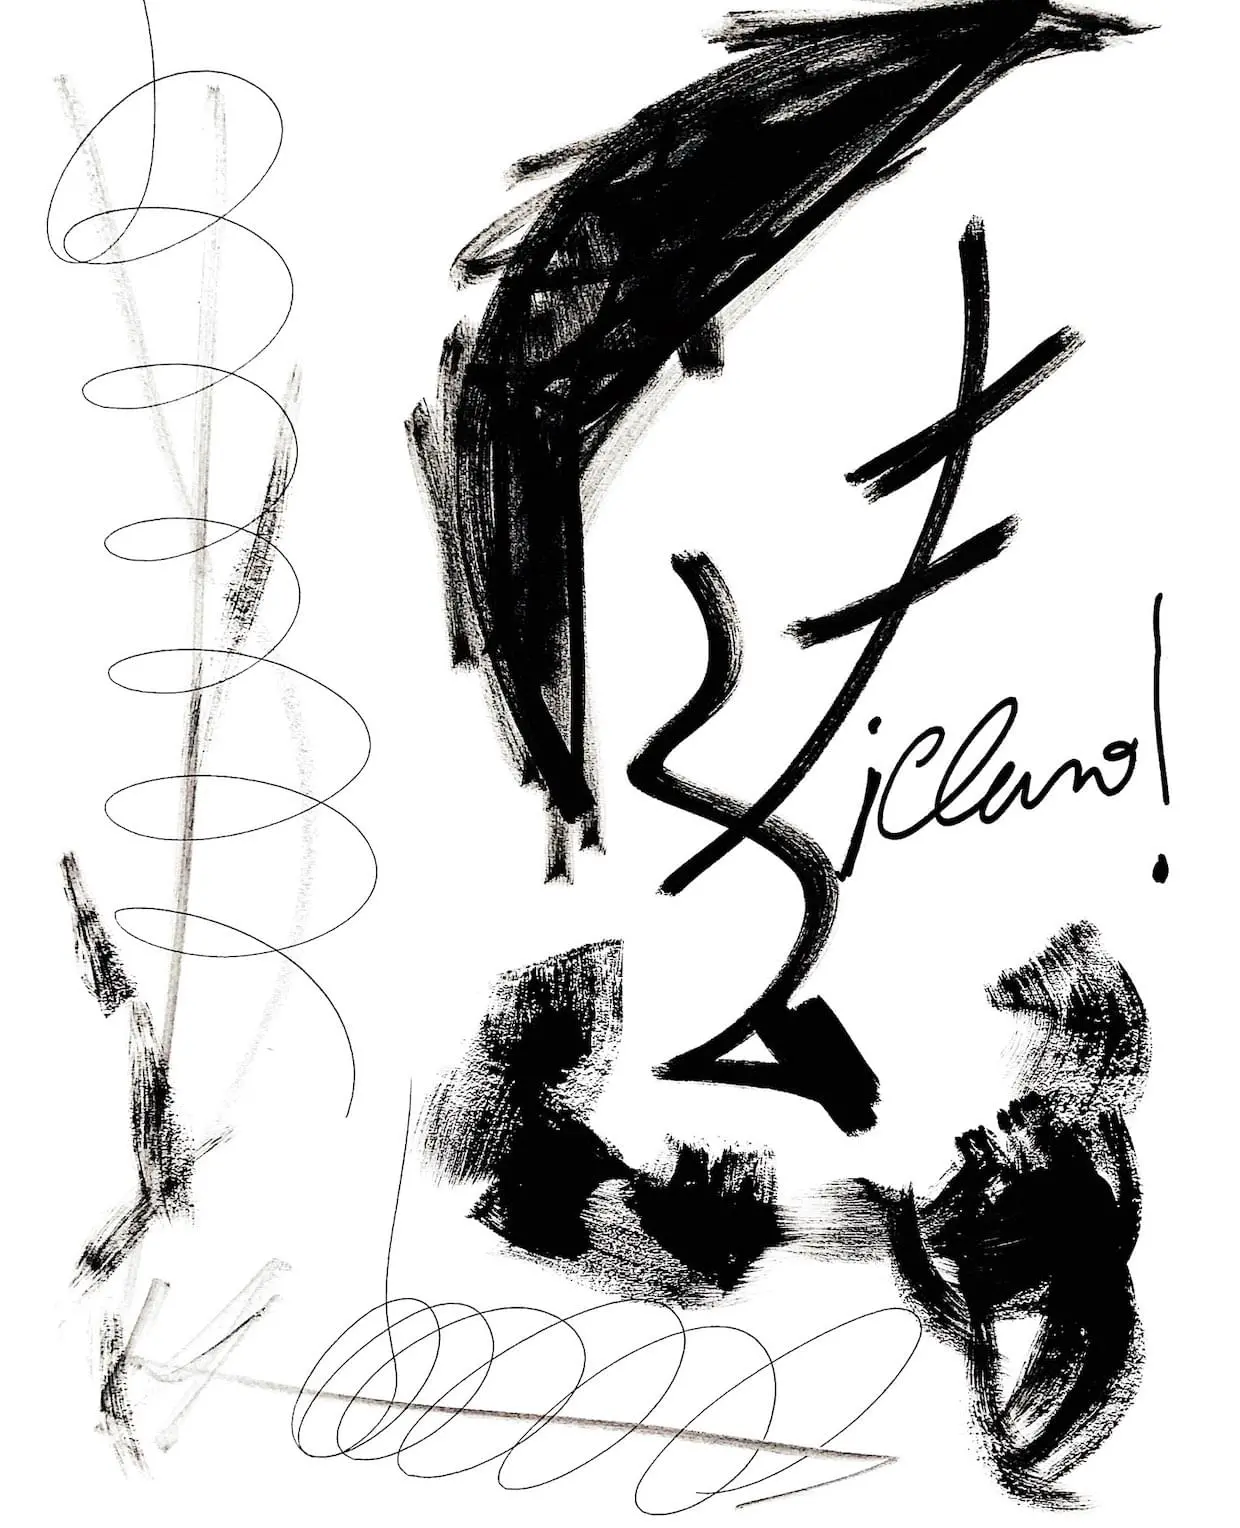 ¡Clano!